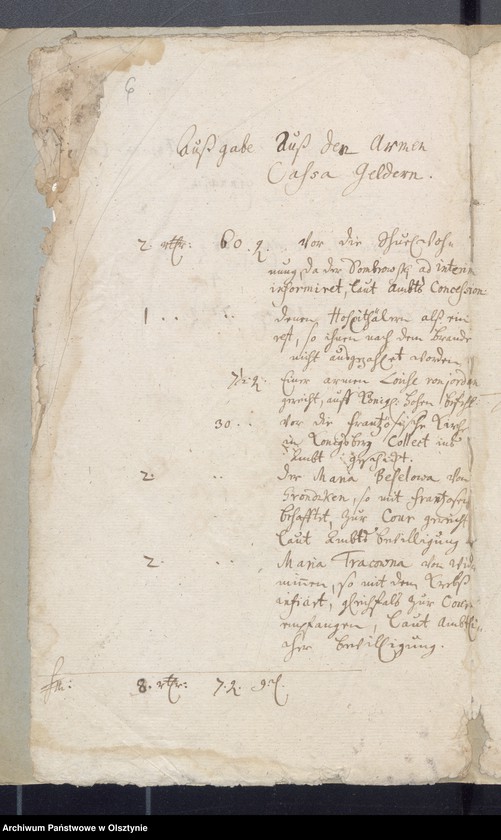 6
Außgabe Auß den Armen
Cassa Geldern.
2. rthr: 60. g. Vor die Schuel Woh-
nung, da der Sombrowski ad interim
informiret, laut Ambts Concession
1 .. .. denen Hospitälern alß ein
rest, so ihnen nach dem Brande
nicht außgezahlet worden
7½. g. Einer armen
gereicht, auff Königl: hohen befehl
30 .. Vor die Frantzösische Kirch
in Königsberg Collect ins
Ambt geschickt.
2. .. der Maria Beselowa von
Grondzken, so mit Frantzosen
behafftet, zur Cour gereicht
laut Ambts bewilligung
2. .. Maria Tracowna von
minnen, so mit dem Krebs
inficirt, gleichfals zur Cour
empfangen, laut Ambtli-
cher bewilligung.
8. rthr: 7. g.
Archiwum Państwowe w Olsztynie